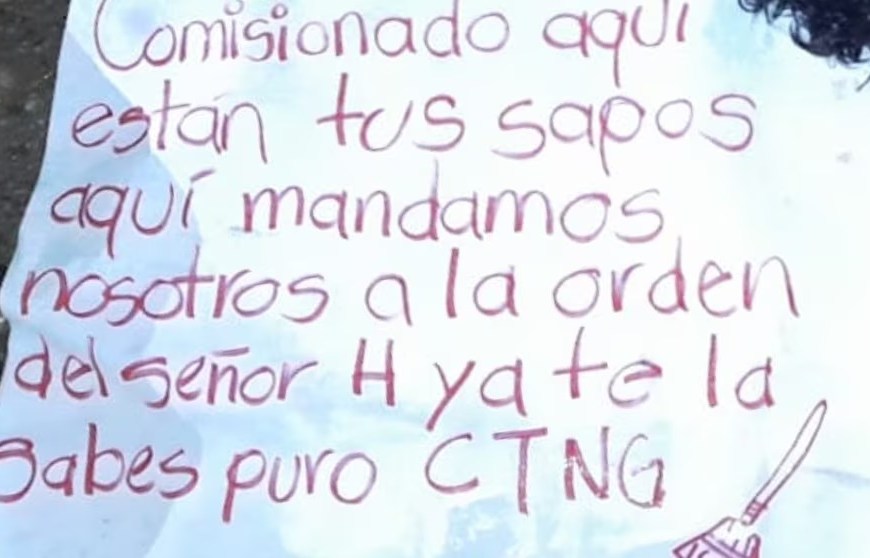 Comisionado aquí
están tus sapos
aquí mandamos
nosotros a la orden
del señor H ya te la
sabes puro CTNG